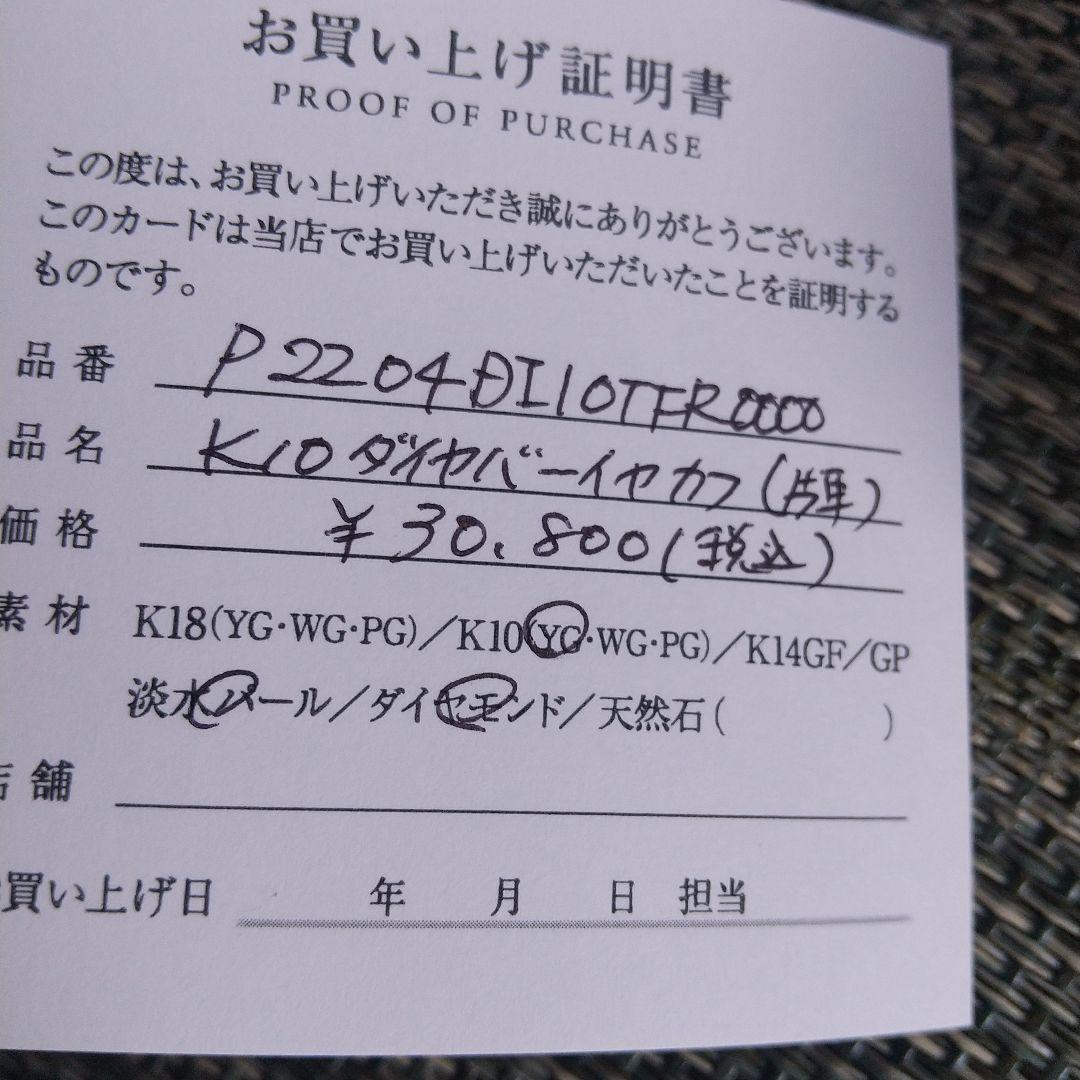 お買い上げ証明書
PROOF OF PURCHASE
この度は、お買い上げいただき誠にありがとうございます。
このカードは当店でお買い上げいただいたことを証明する
ものです。
品番 P2204DI10TFR0000
品名 K10ダイヤバーイヤカフ(片耳)
価格 ¥30.800(税込)
素材 K18(YG・WG・PG)/K10(YG・WG・PG)/K14GF/GP
淡水パール/ダイヤモンド/天然石( )
店舗
お買い上げ日 年 月 日 担当